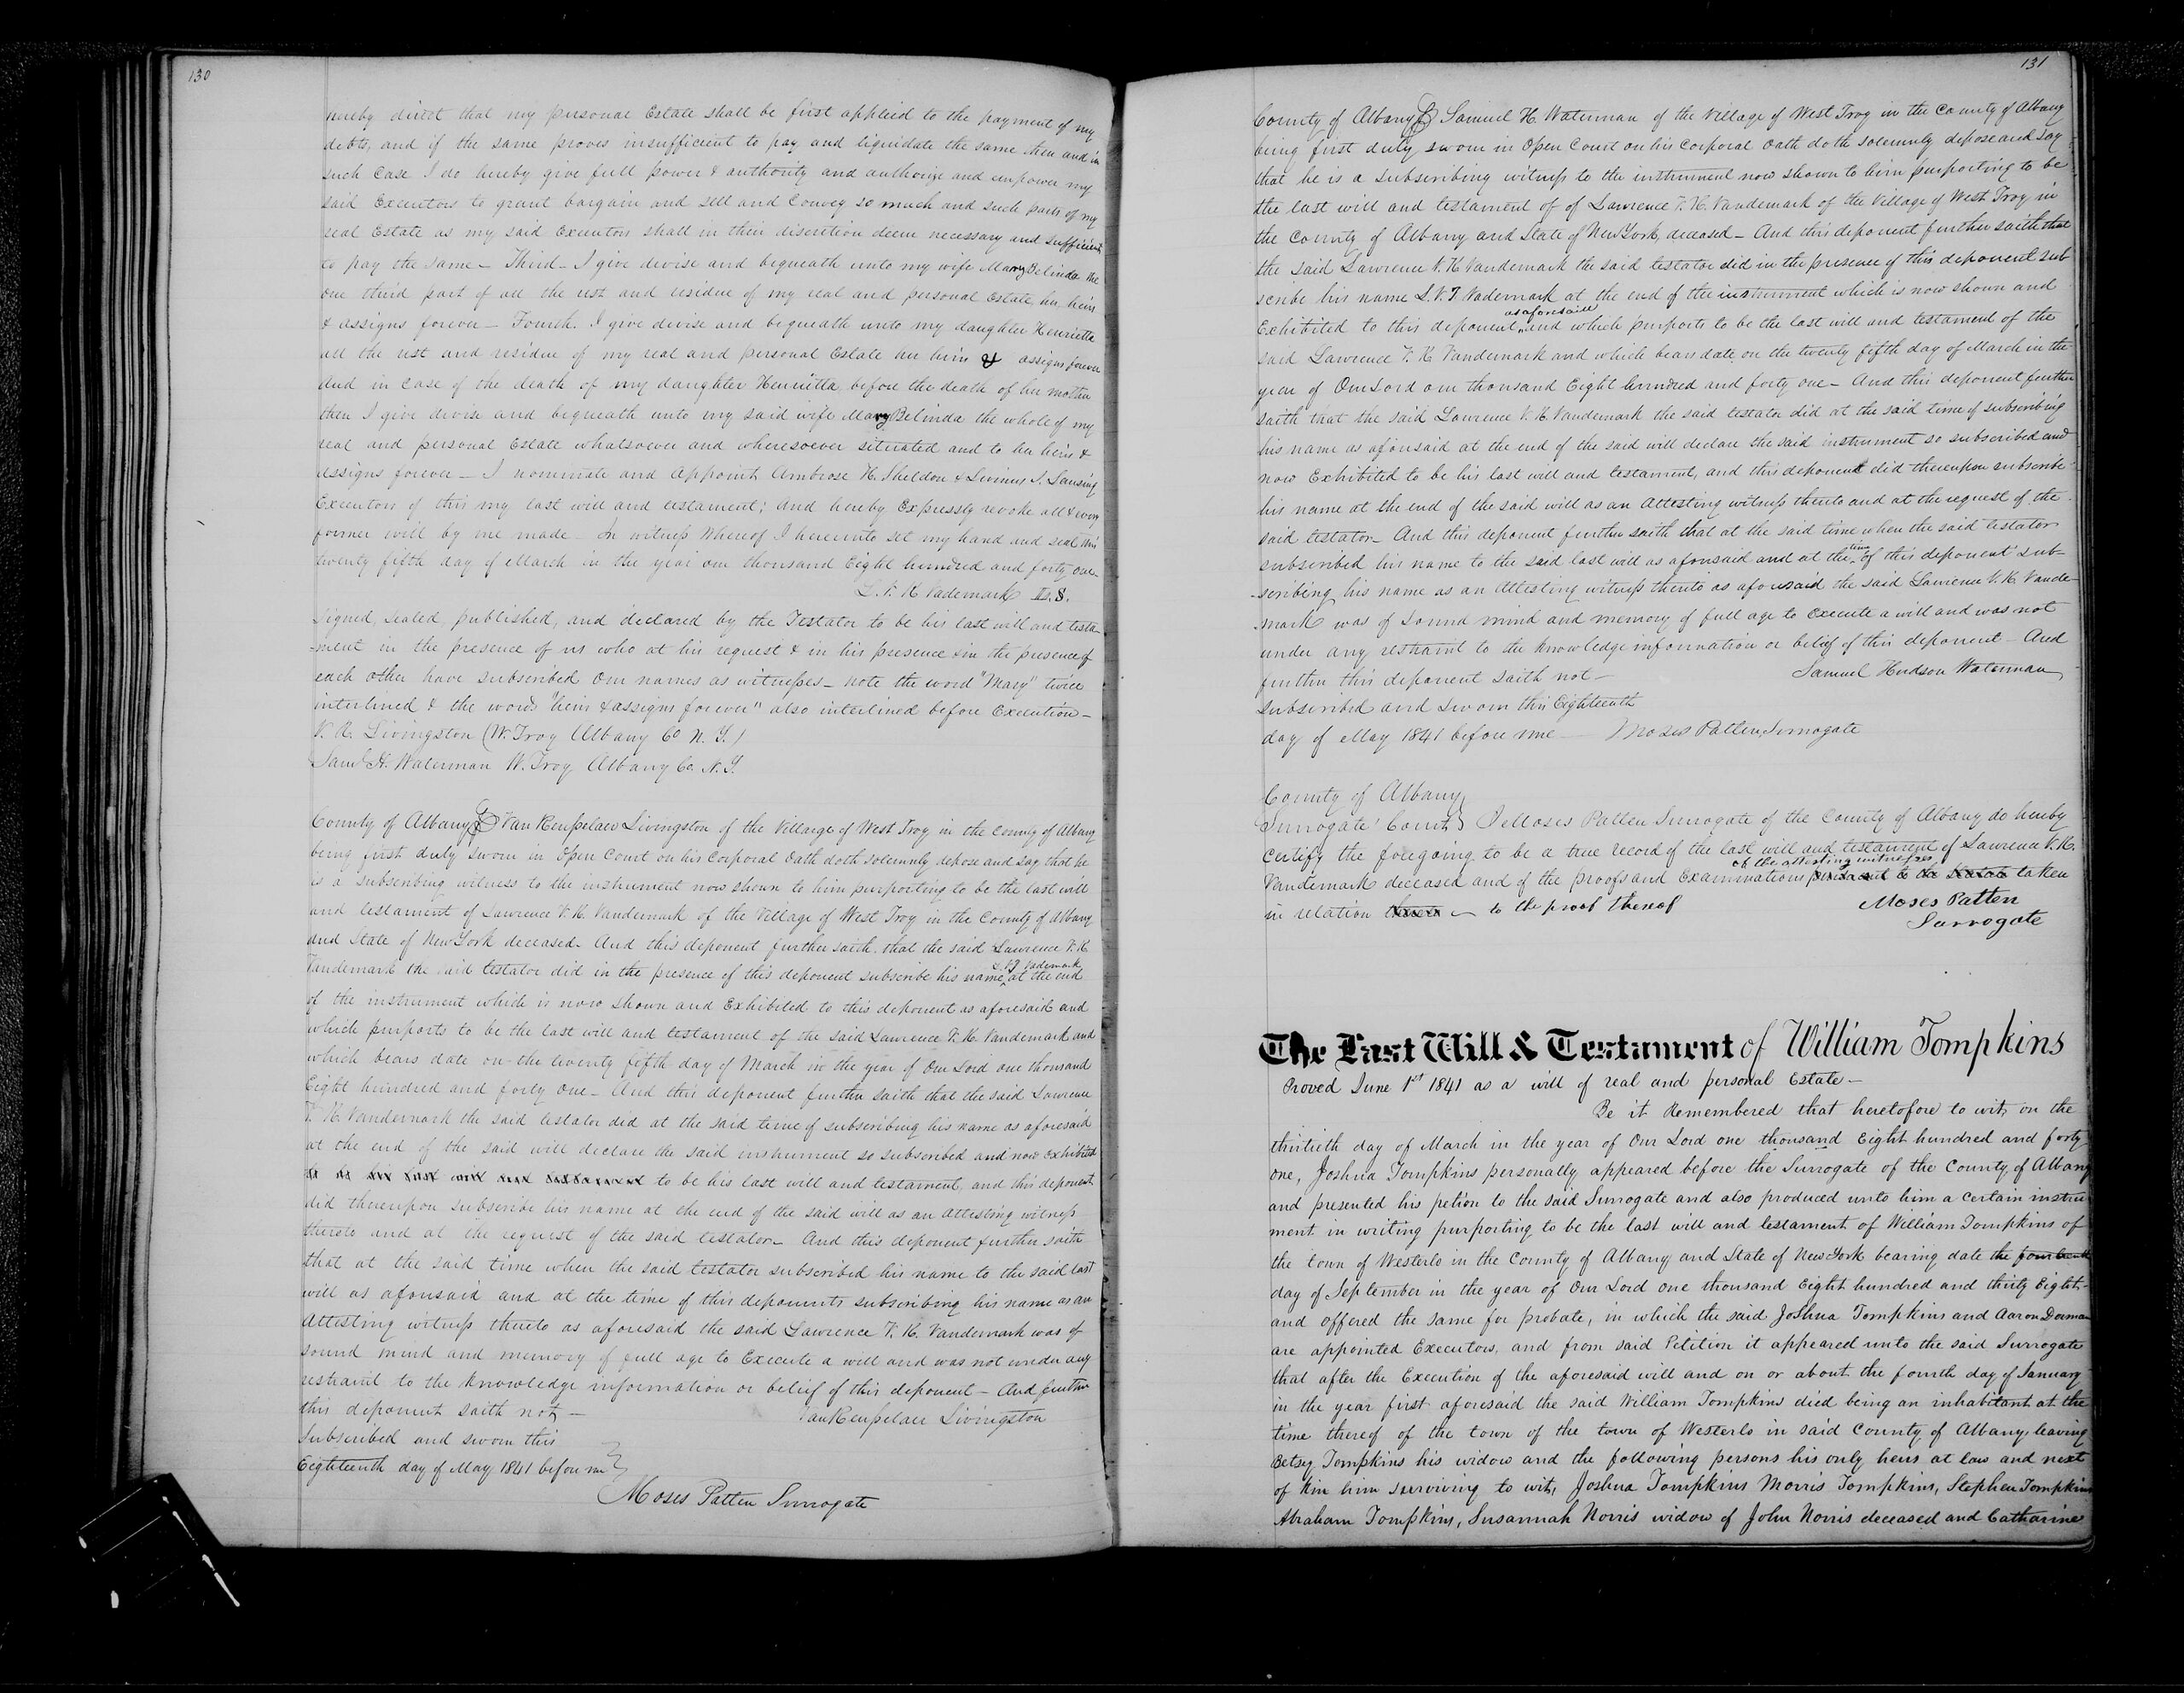 130
hereby direct that my personal Estate shall be first applied to the payment of my
debts, and if the same proves insufficient to pay and liquidate the same then and in
such case I do hereby give full power & authority and authorize and empower my
said Executors to grant bargain and sell and Convey so much and such parts of my
real Estate as my said Executors shall in their discretion deem necessary and sufficient
to pay the same – Third – I give devise and bequeath unto my wife Mary Belinda the
one third part of all the rest and residue of my real and personal Estate, her heirs
& assigns forever – Fourth. I give devise and bequeath unto my daughter Henrietta
all the rest and residue of my real and personal Estate her heirs & assigns forever
And in case of the death of my daughter Henrietta before the death of her mother
then I give devise and bequeath unto my said wife Mary Belinda the whole of my
real and personal Estate whatsoever and wheresoever situated and to her heirs &
assigns forever – I nominate and appoint Ambrose H. Sheldon & Livinus S. Lansing
Executors of this my last will and testament; and hereby Expressly revoke all & every
former will by me made – In witness Whereof I hereunto set my hand and seal this
twenty fifth day of March in the year one thousand Eight hundred and forty one –
L. V. K Vademark L. S.
Signed, sealed, published, and declared by the Testator to be his last will and testa-
-ment in the presence of us who at his request & in his presence & in the presence of
each other have subscribed our names as witnesses – note the word "Mary" twice
interlined & the words "heirs & assigns forever" also interlined before Execution –
V. R. Livingston (W. Troy Albany Co N. Y.)
Saml H. Waterman W. Troy Albany Co. N. Y.
County of Albany Van Rensselaer Livingston of the Villarge of West Troy in the County of Albany
being first duly sworn in Open Court on his Corporal Oath doth solemnly depose and say that he
is a subscribing witness to the instrument now shown to him purporting to be the last will
and testament of Lawrence V. K. Vandemark of the Village of West Troy in the County of Albany
and State of New York deceased – And this deponent further saith that the said Lawrence V. K
Vandemark the said testator did in the presence of this deponent subscribe his name L V J Vademark at the end
of the instrument which is now shown and Exhibited to this deponent as aforesaid and
which purports to be the last will and testament of the said Lawrence V. K. Vandemark and
which bears date on the twenty fifth day of March in the year of Our Lord one thousand
Eight hundred and forty one – And this deponent further saith that the said Lawrence
V. K. Vandemark the said testator did at the said time of subscribing his name as aforesaid
at the end of the said will declare the said instrument so subscribed and now exhibited
to be his last will and testament, and this deponent
did thereupon subscribe his name at the end of the said will as an attesting witness
thereto and at the request of the said testator – And this deponent further saith
that at the said time when the said testator subscribed his name to the said last
will as aforesaid and at the time of this deponents subscribing his name as an
Attesting witness thereto as aforesaid the said Lawrence V. K. Vandemark was of
sound mind and memory of full age to Execute a will and was not under any
restraint to the knowledge information or belief of this deponent – And further
this deponent saith not –
Van Rensselaer Livingston
Subscribed and sworn this
Eighteenth day of May 1841 before me
Moses Patten Surrogate
131
County of Albany Samuel H. Waterman of the Village of West Troy in the County of Albany
being first duly sworn in Open Court on his Corporal Oath doth solemnly depose and say
that he is a subscribing witness to the instrument now shown to him purporting to be
the last will and testament of of Lawrence V. K. Vandemark of the Village of West Troy in
the County of Albany and State of New York, deceased – And this deponent further saith that
the said Lawrence V. K Vandemark the said testator did in the presence of this deponent sub
scribe his name L. V. J. Vademark at the end of the instrument which is now shown and
Exhibited to this deponent as aforesaid and which purports to be the last will and testament of the
said Lawrence V. K Vandemark and which bears date on the twenty fifth day of March in the
year of Our Lord one thousand Eight hundred and forty one – And this deponent further
saith that the said Lawrence V. K. Vandemark the said testator did at the said time of subscribing
his name as aforesaid at the end of the said will declare the said instrument so subscribed and
now Exhibited to be his last will and testament, and this deponent did thereupon subscribe
his name at the end of the said will as an Attesting witness thereto and at the request of the
said testator – And this deponent further saith that at the said time when the said testator
subscribed his name to the said last will as aforesaid and at the time of this deponent' sub-
-scribing his name as an attesting witness thereto as aforesaid the said Lawrence V. K. Vande-
mark was of sound mind and memory of full age to Execute a will and was not
under any restraint to the knowledge information or belief of this deponent – And
further this deponent saith not –
Samuel Hudson Waterman
Subscribed and sworn this Eighteenth
day of May 1841 before me – Moses Patten, Surrogate
County of Albany
Surrogate' Court I Moses Patten Surrogate of the County of Albany do hereby
certify the foregoing to be a true record of the last will and testament of Lawrence V. K.
Vandemark deceased and of the proofs and Examinations of the attesting witnesses taken
in relation to the proof thereof
Moses Patten
Surrogate
The Last Will & Testament of William Tompkins
Proved June 1st 1841 as a will of real and personal Estate –
Be it Remembered that heretofore to wit, on the
thirtieth day of March in the year of Our Lord one thousand Eight hundred and forty
one, Joshua Tompkins personally appeared before the Surrogate of the County of Albany
and presented his petion to the said Surrogate and also produced unto him a certain instru
ment in writing purporting to be the last will and testament of William Tompkins of
the town of Westerlo in the County of Albany and State of New York bearing date the fourteenth
day of September in the year of Our Lord one thousand Eight hundred and thirty Eight
and offered the same for probate, in which the said Joshua Tompkins and Aaron Dorman
are appointed Executors, and from said Petition it appeared unto the said Surrogate
that after the Execution of the aforesaid will and on or about the fourth day of January
in the year first aforesaid the said William Tompkins died being an inhabitant at the
time thereof of the town of the town of Westerlo in said County of Albany, leaving
Betsy Tompkins his widow and the following persons his only heirs at law and next
of kin him surviving to wit, Joshua Tompkins Morris Tompkins, Stephen Tompkins
Abraham Tompkins, Susannah Norris widow of John Norris deceased and Catharine